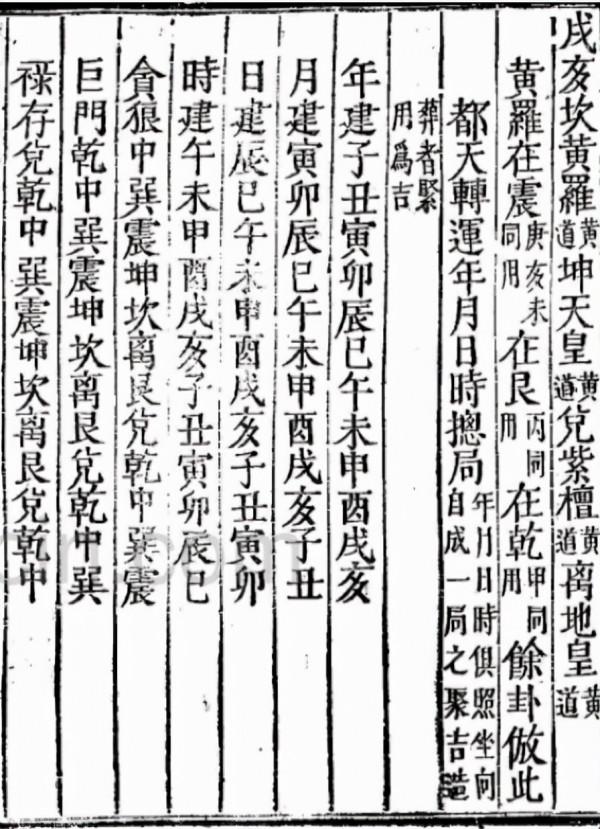 戌亥坎黃羅黃道坤天皇黃道兌紫檀黃道离地皇黃道
黃羅在震庚亥未同用在艮丙同用在乾甲同用餘卦倣此
都天轉運年月日時摠局年月日時俱照坐向自成一局之聚吉造
葬者緊用爲吉
年建子丑寅卯辰巳午未申酉戌亥
月建寅卯辰巳午未申酉戌亥子丑
日建辰巳午未申酉戌亥子丑寅卯
時建午未申酉戌亥子丑寅卯辰巳
貪狼中巽震坤坎离艮兌乾中巽震
巨門乾中巽震坤坎离艮兌乾中巽
祿存兌乾中巽震坤坎离艮兌乾中